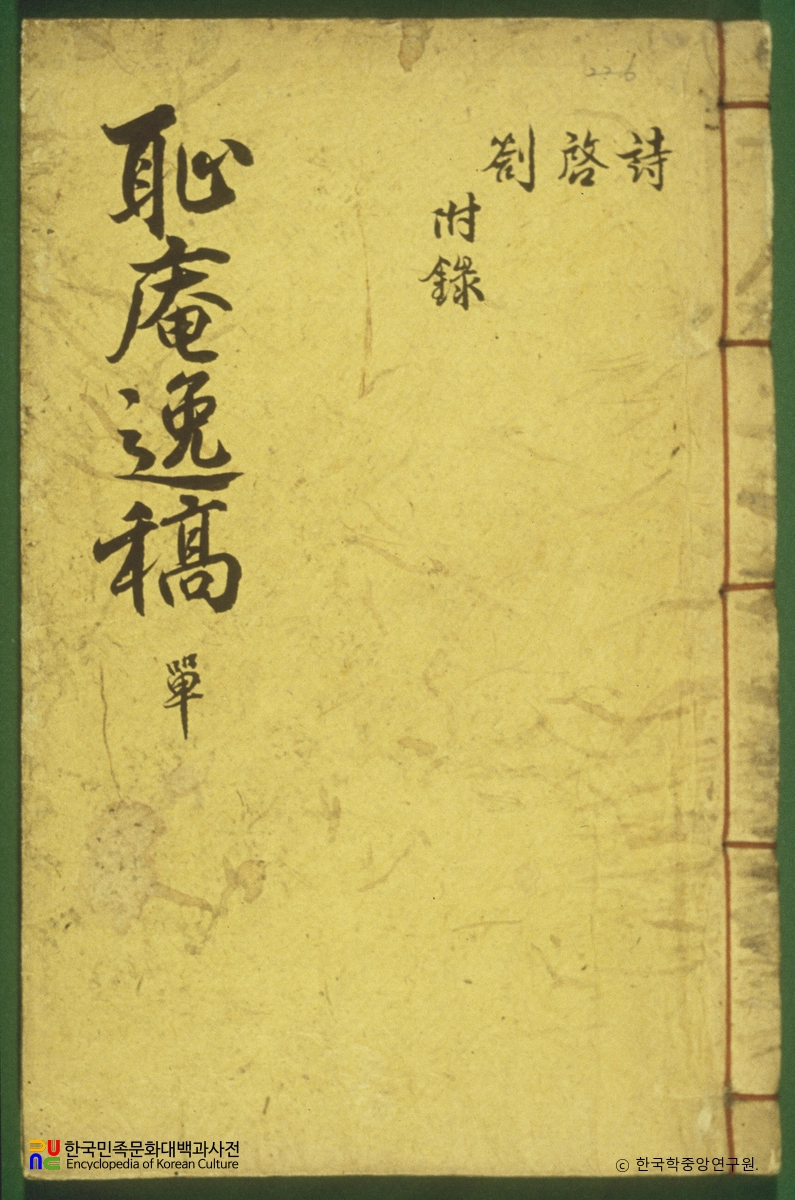 226
詩
啓
劄
附錄
恥庵逸稿 單
한국민족문화대백과사전
Encyclopedia of Korean Culture
ⓒ 한국학중앙연구원.